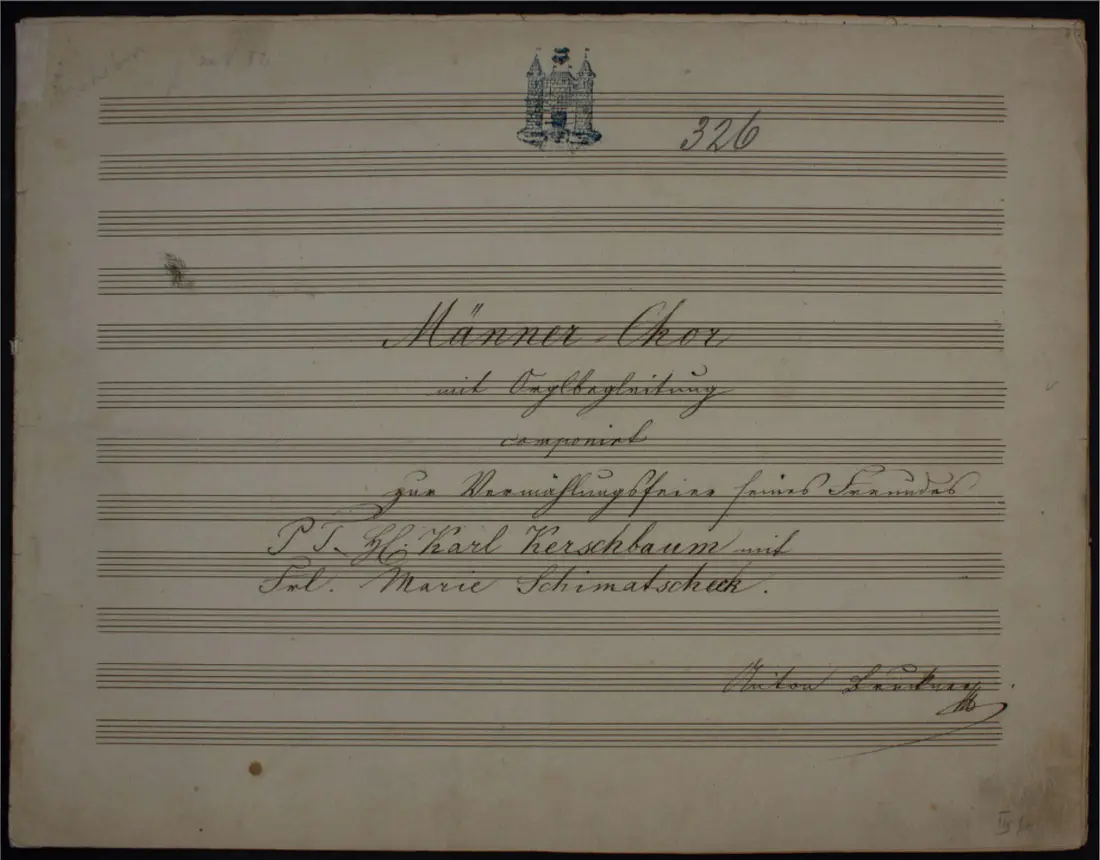 326
Männer-Chor
mit Orglbegleitung
componirt
zur Vermählungsfeier seines Freundes
P. T. H: Karl Kerschbaum mit
Frl. Marie Schimatscheck.
Anton Bruckner